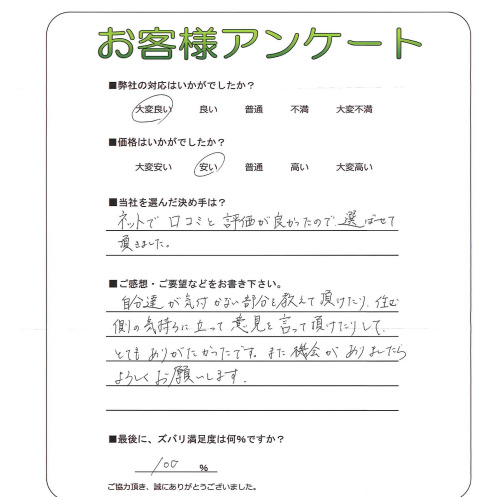 お客様アンケート
■弊社の対応はいかがでしたか？
大変良い 良い 普通 不満 大変不満
■価格はいかがでしたか？
大変安い 安い 普通 高い 大変高い
■当社を選んだ決め手は？
ネットで口コミと評価が良かったので、選ばせて
頂きました。
■ご感想・ご要望などをお書き下さい。
自分達が気付かない部分を教えて頂けたり、住む
側の気持ちに立って意見を言って頂けたりして、
とてもありがたかったです。また機会がありましたら
よろしくお願いします。
■最後に、ズバリ満足度は何％ですか？
100 ％
ご協力頂き、誠にありがとうございました。